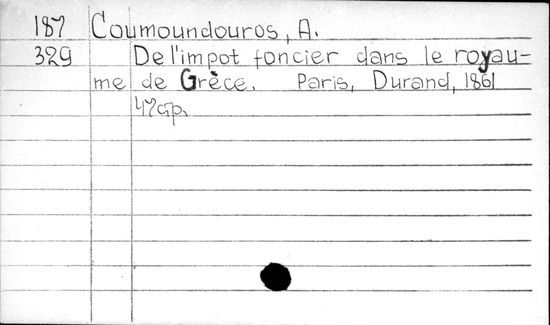 187 Coumoundouros, A.
329 De l'impot foncier dans le royau-
me de Grèce. Paris, Durand, 1861
47 p.